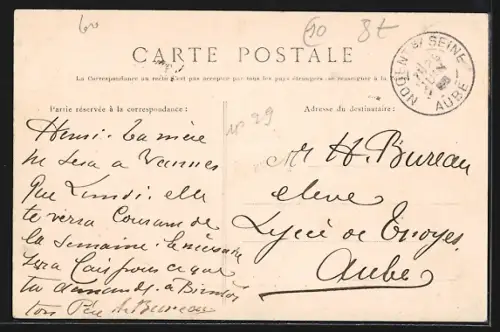 60
90 8t
CARTE POSTALE
La Correspondance au recto n'est pas acceptée par tous les pays étrangers
Partie réservée à la correspondance :
Adresse du destinataire :
NOGENT S/ SEINE
AUBE
n° 29
Henri. Ta mère
ne sera à Vannes
que Lundi. elle
te verra Courant de
la semaine. le nécessaire
sera fait pour ce que
tu demandes. à Bientôt
ton Père H. Bureau
Mr H. Bureau
eleve
Lycée de Troyes
Aube